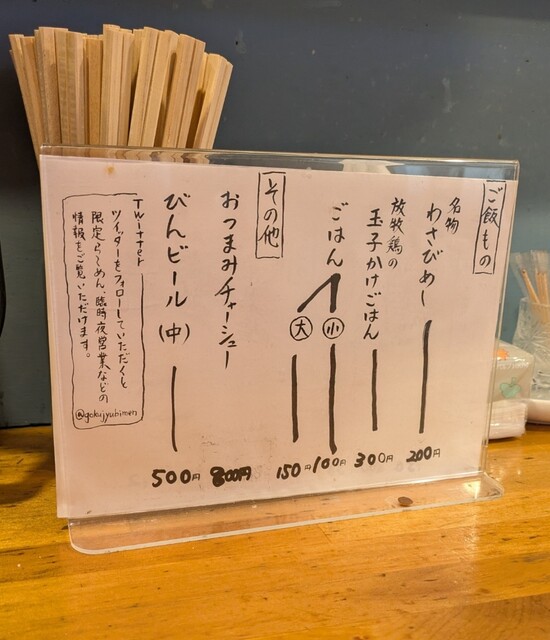 ご飯もの
名物
わさびめし
200円
放牧鶏の
玉子かけごはん
300円
ごはん
小
100円
大
150円
その他
おつまみチャーシュー
800円
びんビール(中)
500円
Twitter
ツイッターをフォローしていただくと
限定らーめん、臨時夜営業などの
情報をご覧いただけます。
@gokujyubimen